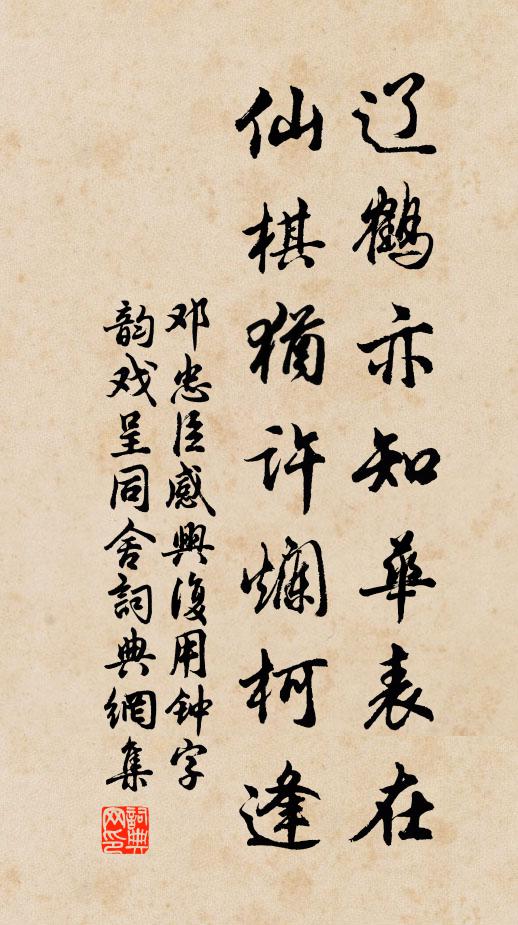 辽鹤亦知华表在
仙棋犹许烂柯逢
邓忠臣感興復用钟字
韵戏呈同舍詞典網集
詞典网印